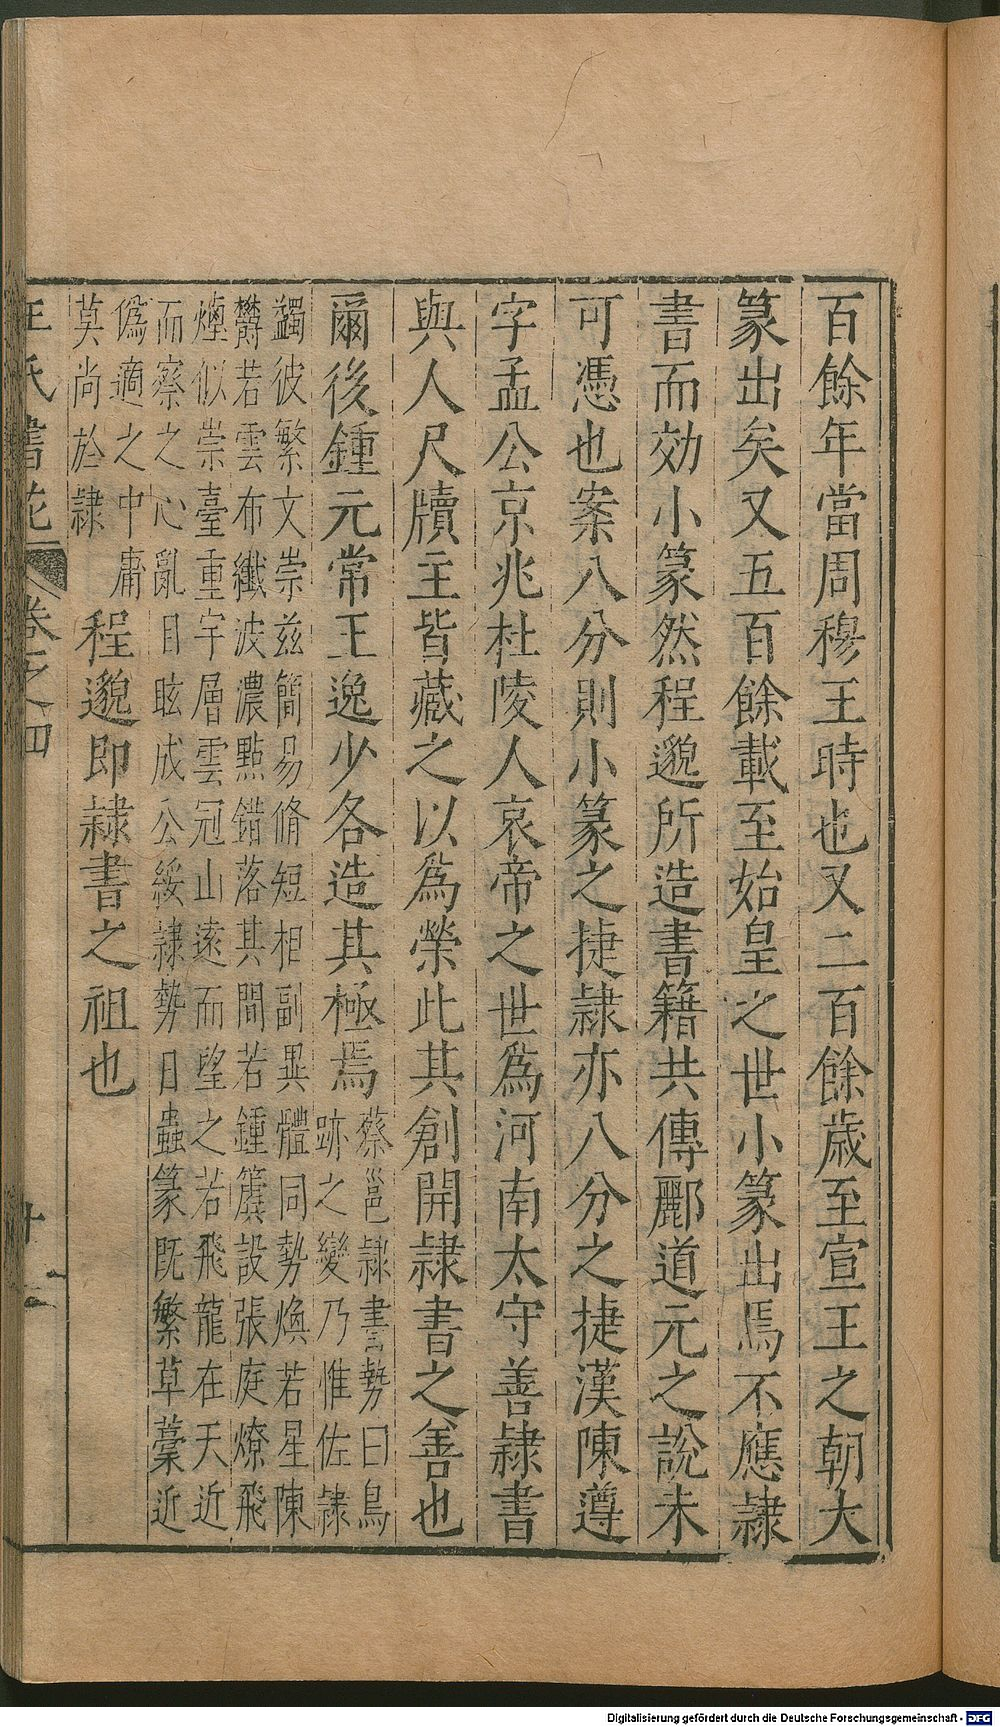 百餘年當周穆王時也又二百餘歲至宣王之朝大
篆出矣又五百餘載至始皇之世小篆出焉不應隷
書而効小篆然程邈所造書籍共傳酈道元之說未
可憑也案八分則小篆之捷隷亦八分之捷漢陳遵
字孟公京兆杜陵人哀帝之世為河南太守善隷書
與人尺牘主皆藏之以為榮此其創開隷書之善也
爾後鍾元常王逸少各造其極焉
蔡邕隷書勢曰鳥
跡之變乃惟佐隷
蠲彼繁文崇茲簡易脩短相副異體同勢煥若星陳
欝若雲布纖波濃點錯落其間若鍾簴設張庭燎飛
煙似崇臺重宇層雲冠山遠而望之若飛龍在天近
而察之心亂目眩成公綏隷勢曰蟲篆既繁草藁近
偽適之中庸
莫尚於隷
程邈即隷書之祖也
王氏書苑
卷之四
十二
Digitalisierung gefördert durch die Deutsche Forschungsgemeinschaft - DFG